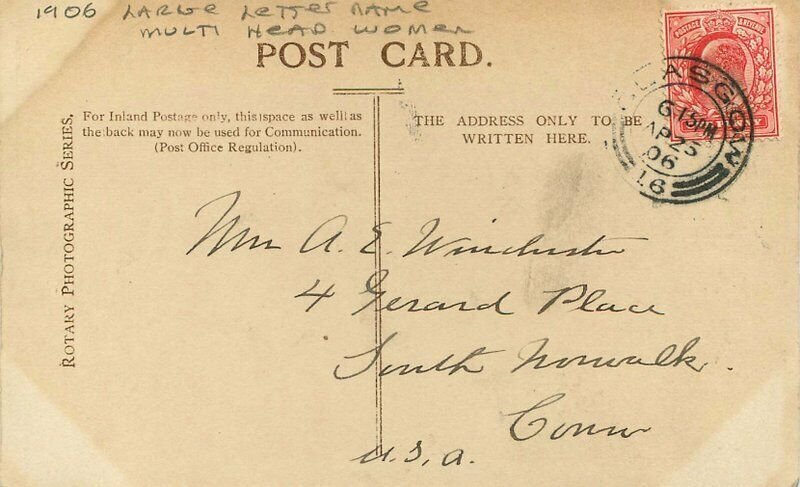 1906 LARGE LETTER NAME
MULTI HEAD WOMEN
POST CARD.
For Inland Postage only, this space as well as
the back may now be used for Communication.
(Post Office Regulation).
THE ADDRESS ONLY TO BE
WRITTEN HERE.
ROTARY PHOTOGRAPHIC SERIES.
POSTAGE & REVENUE
GLASGOW
6 15 PM
AP 25
06
16
A. E. Winchester
4 Gerard Place
South Norwalk.
Conn
U.S.A.